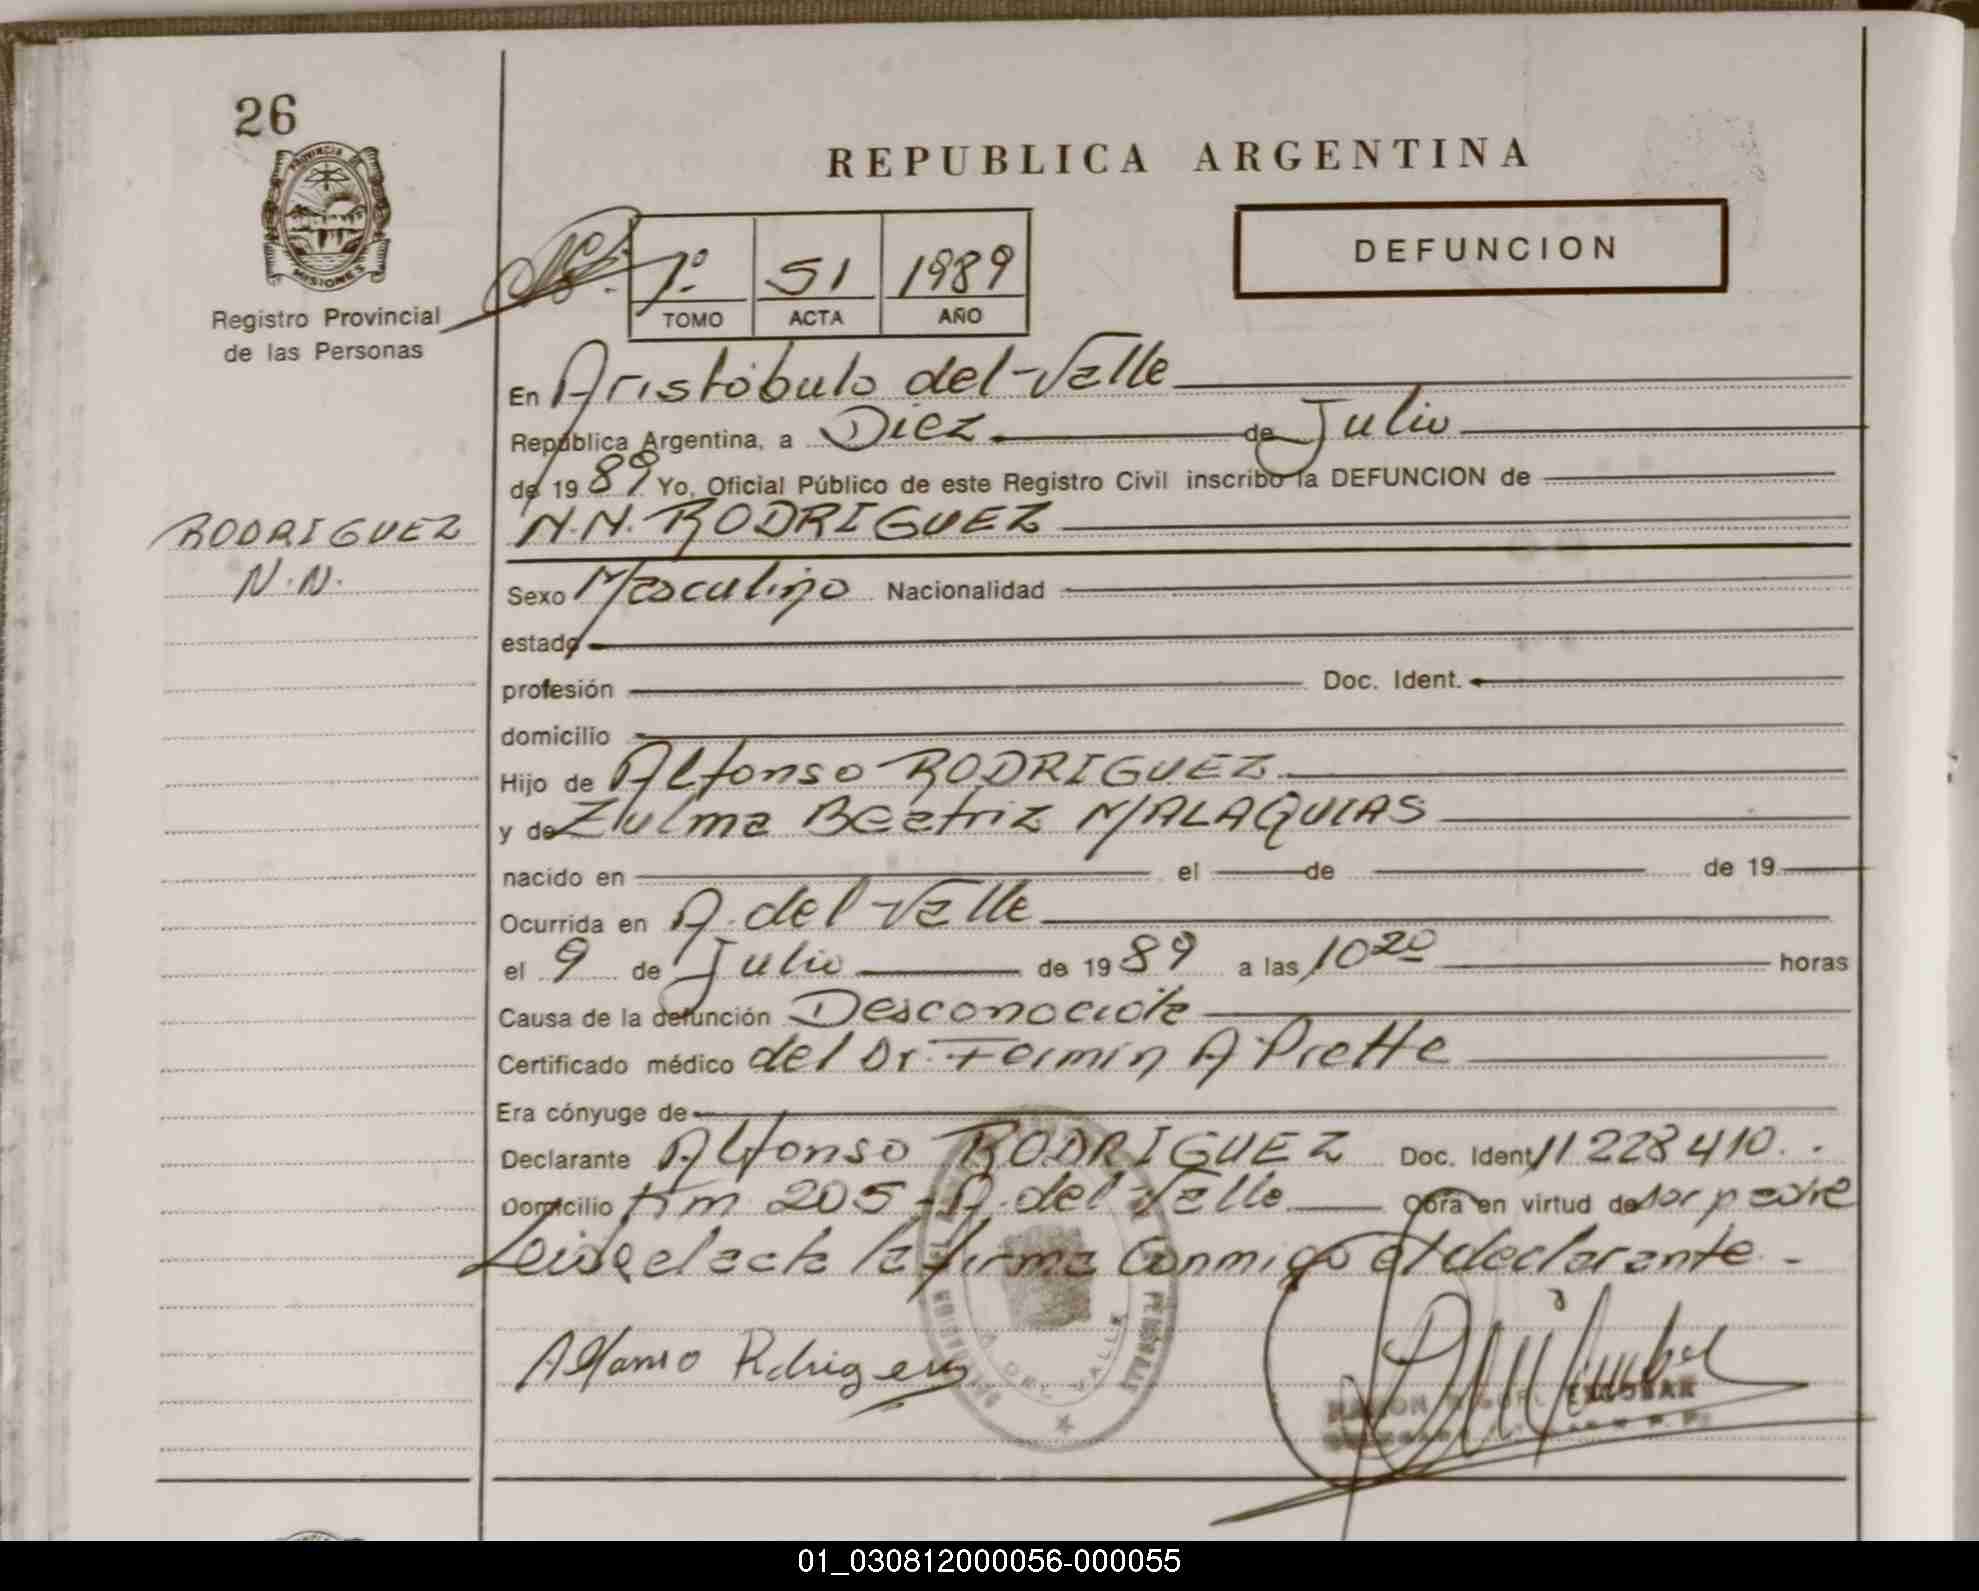 26
PROVINCIA DE
MISIONES
Registro Provincial
de las Personas
REPUBLICA ARGENTINA
DEFUNCION
1º 51 1989
TOMO ACTA AÑO
En Aristóbulo del Valle
República Argentina, a Diez de Julio
de 1989 Yo, Oficial Público de este Registro Civil inscribo la DEFUNCION de
RODRIGUEZ
N.N.
N.N. RODRIGUEZ
Sexo Masculino Nacionalidad
estado
profesión Doc. Ident.
domicilio
Hijo de Alfonso RODRIGUEZ
y de Zulma Beatriz MALAQUIAS
nacido en el de de 19
Ocurrida en A. del Valle
el 9 de Julio de 1989 a las 10 20 horas
Causa de la defunción Desconocida
Certificado médico del Dr. Fermín A. Piette
Era cónyuge de
Declarante Alfonso RODRIGUEZ Doc. Ident. 11228410.
Domicilio Km 205 - A. del Valle Obra en virtud de ser padre
Leida el acta la firma Conmigo el declarante -
Alfonso Rdrigez
DEL VALLE
ESCOBAR
01_030812000056-000055